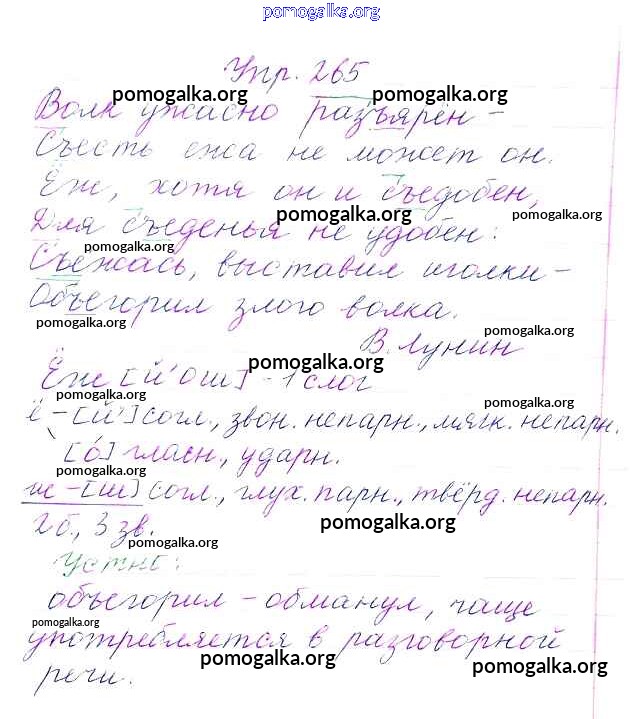 pomogalka.org
Упр. 265
pomogalka.org pomogalka.org
Волк ужасно разъярён –
Съесть ежа не может он.
Ёж, хотя он и съедобен,
pomogalka.org pomogalka.org
Для съеденья не удобен:
pomogalka.org
Съежась, выставил иголки –
Объегорил злого волка.
pomogalka.org pomogalka.org
В. Лунин
pomogalka.org
Ёж [й'ош] – 1 слог
pomogalka.org pomogalka.org
ё – [й'] согл., звон. непарн., мягк. непарн.
[о́] гласн., ударн.
pomogalka.org
ж – [ш] согл., глух. парн., твёрд. непарн.
pomogalka.org
2 б., 3 зв.
pomogalka.org
Устно:
объегорил – обманул, чаще
pomogalka.org
употребляется в разговорной
pomogalka.org pomogalka.org
речи.